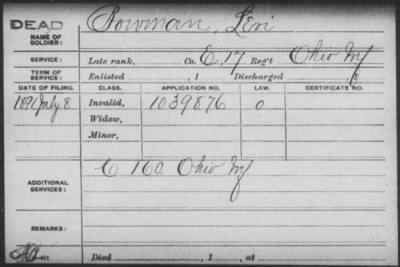 DEAD
NAME OF SOLDIER: Bowman, Levi
SERVICE: Late rank, Co. E, 17 Reg't Ohio Inf
TERM OF SERVICE: Enlisted , 1 Discharged , 1
DATE OF FILING. CLASS. APPLICATION NO. LAW. CERTIFICATE NO.
1891 July 8 Invalid, 1039876 0
Widow,
Minor,
C 160 Ohio Inf
ADDITIONAL SERVICES:
REMARKS:
Died , 1 , at